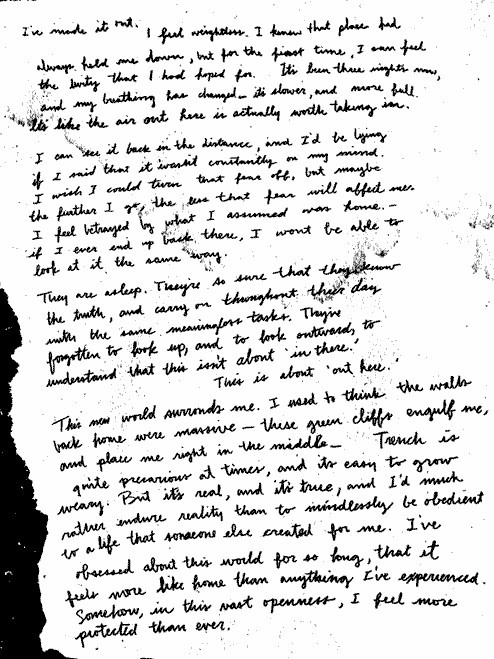 I've made it out. I feel weightless. I knew that place had
always held me down, but for the first time, I can feel
the levity that I had hoped for. It's been three nights now,
and my breathing has changed – it's slower, and more full.
It's like the air out here is actually worth taking in.
I can see it back in the distance, and I'd be lying
if I said that it wasn't constantly on my mind.
I wish I could turn that fear off, but maybe
the further I go, the less that fear will affect me.
I feel betrayed by what I assumed was home. –
if I ever end up back there, I won't be able to
look at it the same way.
They are asleep. They're so sure that they know
the truth, and carry on throughout their day
with the same meaningless tasks. They're
forgotten to look up, and to look outward, to
understand that this isn't about 'in there.'
This is about 'out here.'
This new world surronds me. I used to think the walls
back home were massive – these green cliffs engulf me,
and place me right in the middle – Trench is
quite precarious at times, and its easy to grow
weary. But it's real, and it's true, and I'd much
rather endure reality than to mindlessly be obedient
to a life that someone else created for me. I've
obsessed about this world for so long, that it
feels more like home than anything I've experienced.
Somehow, in this vast openness, I feel more
protected than ever.